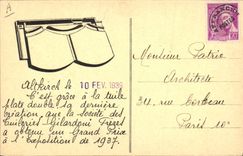 A
Altkirch le 10 FEV. 1939
C'est grâce à la tuile
plate double, sa dernière
création, que la société des
Tuileries Gilardoni Frères
a obtenu un Grand Prix à
l'Exposition de 1937.
Monsieur Patrix
Architecte
34, rue
Paris 10e